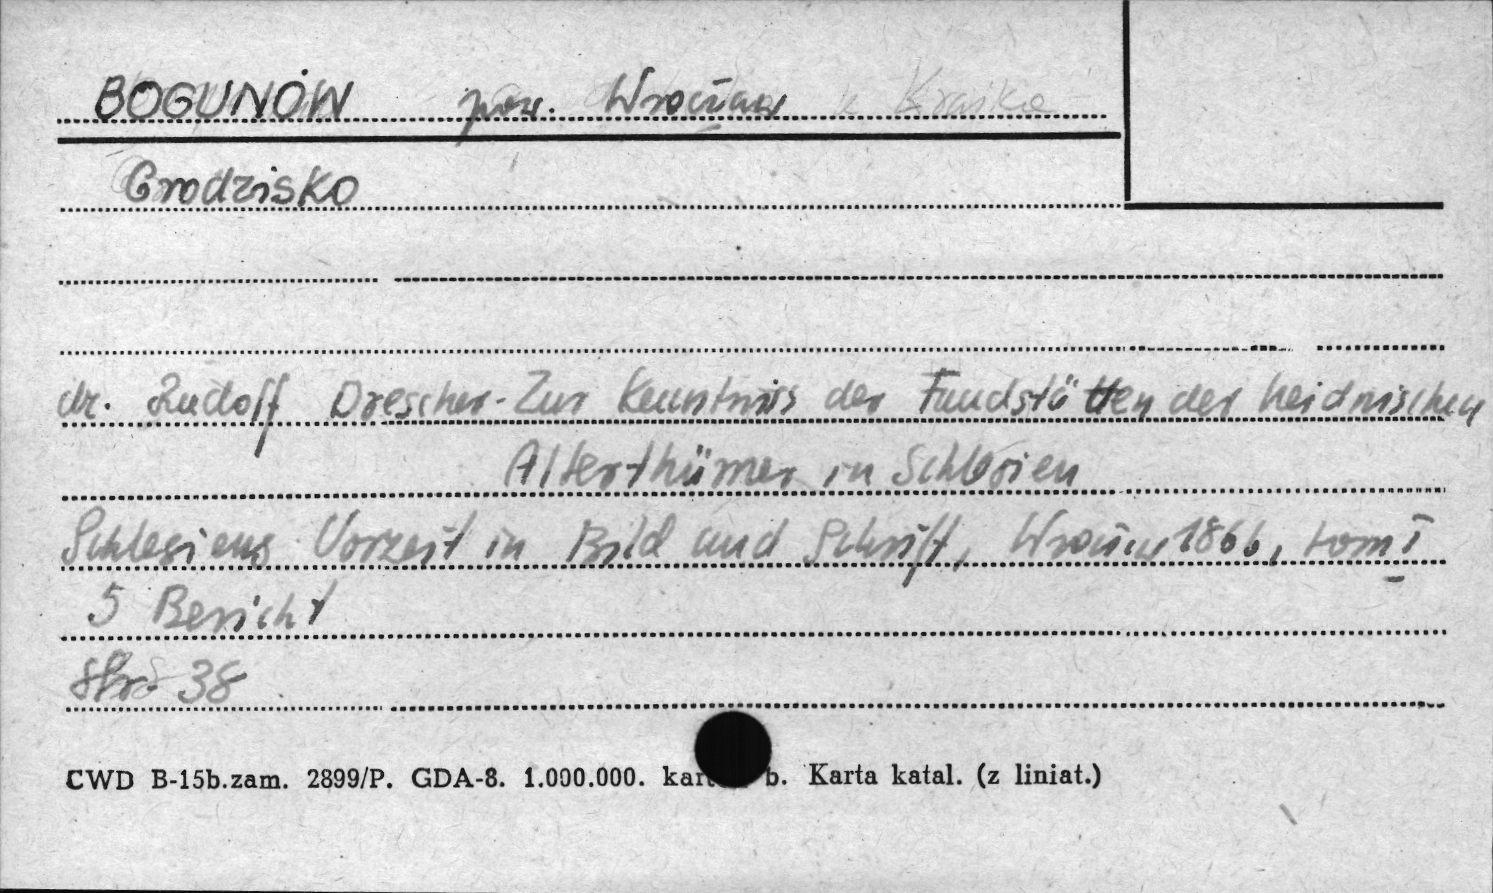 BOGUNÓW pow. Wrocław
Grodzisko
dr. Rudolf Drescher - Zur Kenntniss der Fundstätten der heidnischen
Alterthümer in Schlesien
Schlesiens Vorzeit in Bild und Schrift, Wrocław 1866, tom I
5 Bericht
str. 38
CWD B-15b.zam. 2899/P. GDA-8. 1.000.000. b. Karta katal. (z liniat.)